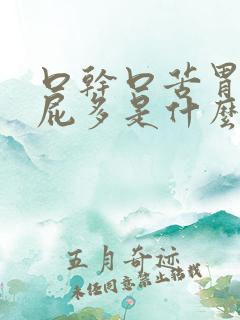 口幹口苦胃
屁多是什麼
五月奇迹
未经同意禁止转载